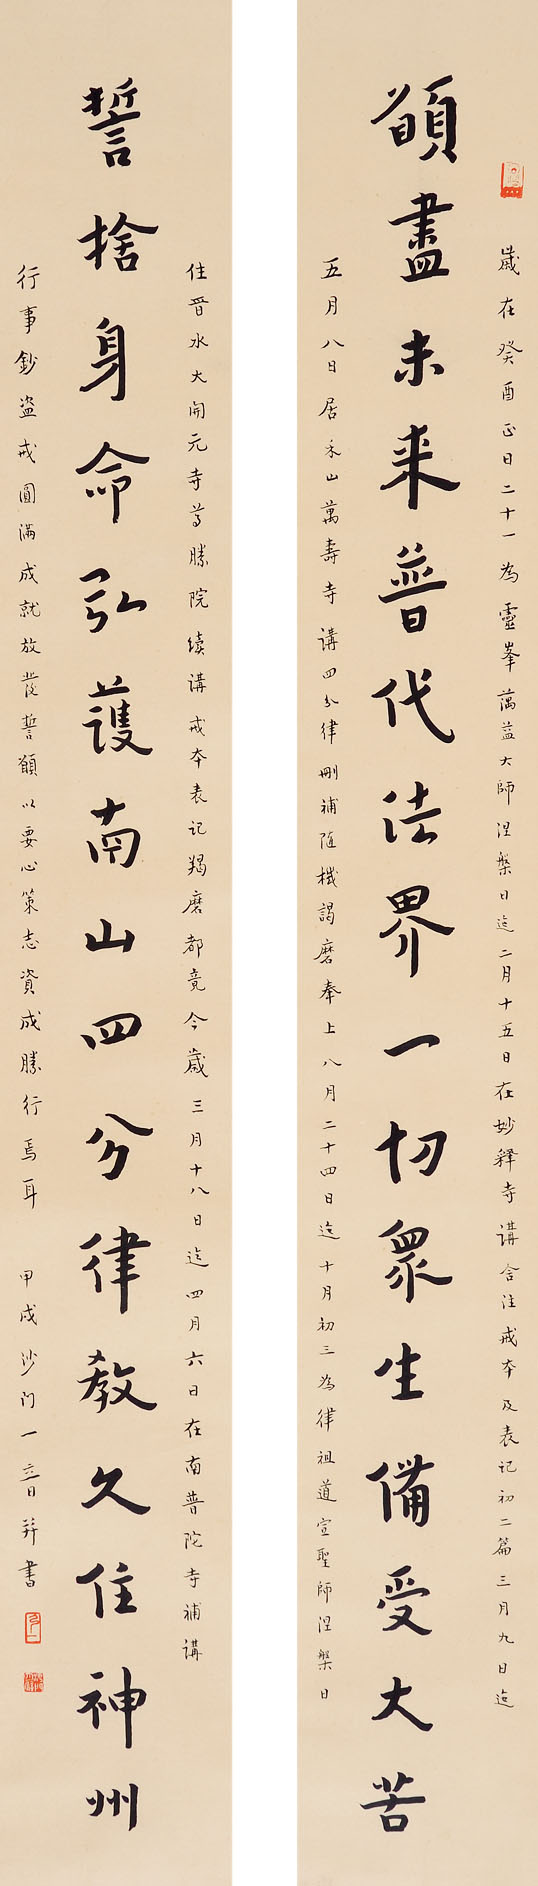 歲在癸酉正月二十一為靈峯蕅益大師涅槃日迄二月十五日在妙釋寺講含注戒本及表記初二篇三月九日迄
願盡未来普代法界一切眾生備受大苦
五月八日居禾山萬壽寺講四分律刪補隨機羯磨奉上八月二十四日迄十月初三為律祖道宣聖師涅槃日
住晉水大開元寺尊勝院續講戒本表記羯磨都竟今歲三月十八日迄四月六日在南普陀寺補講
誓捨身命弘護南山四分律教久住神州
行事鈔盜戒圓滿成就故發誓願以要心策志資成勝行焉耳 甲戌沙門一音并書